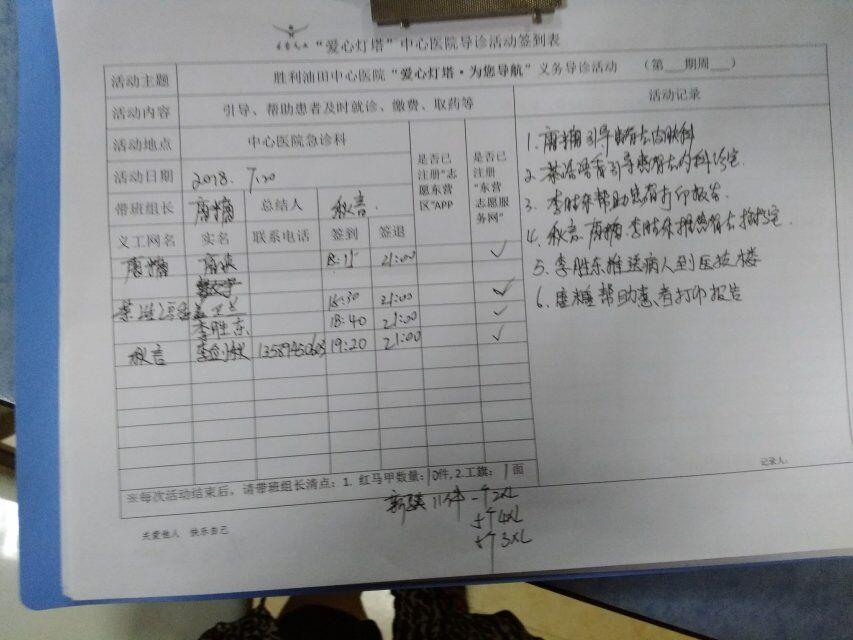 “爱心灯塔”中心医院导诊活动签到表
活动主题 胜利油田中心医院“爱心灯塔·为您导航”义务导诊活动 （第___期周___）
活动内容 引导、帮助患者及时就诊、缴费、取药等 活动记录
活动地点 中心医院急诊科
是否已注册“志愿东营区”APP
是否已注册“东营志愿服务网”
活动日期 2018. 7.20
带班组长 唐糖 总结人 秋言
义工网名 实名 联系电话 签到 签退
唐糖 21:00 ✓
18:30 21:00 ✓
李胜东 18:40 21:00 ✓
秋言 19:20 21:00 ✓
1. 唐糖引导患者去内科
2. 引导患者去内科诊室
3. 帮助患者打印报告
4. 秋言 唐糖
5. 李胜东推送病人到医技楼
6. 唐糖帮助患者打印报告
记录人：
※每次活动结束后，请带班组长清点：1. 红马甲数量：10件，2.工旗：1面
11件 一个2XL
4XL
3XL
关爱他人 快乐自己